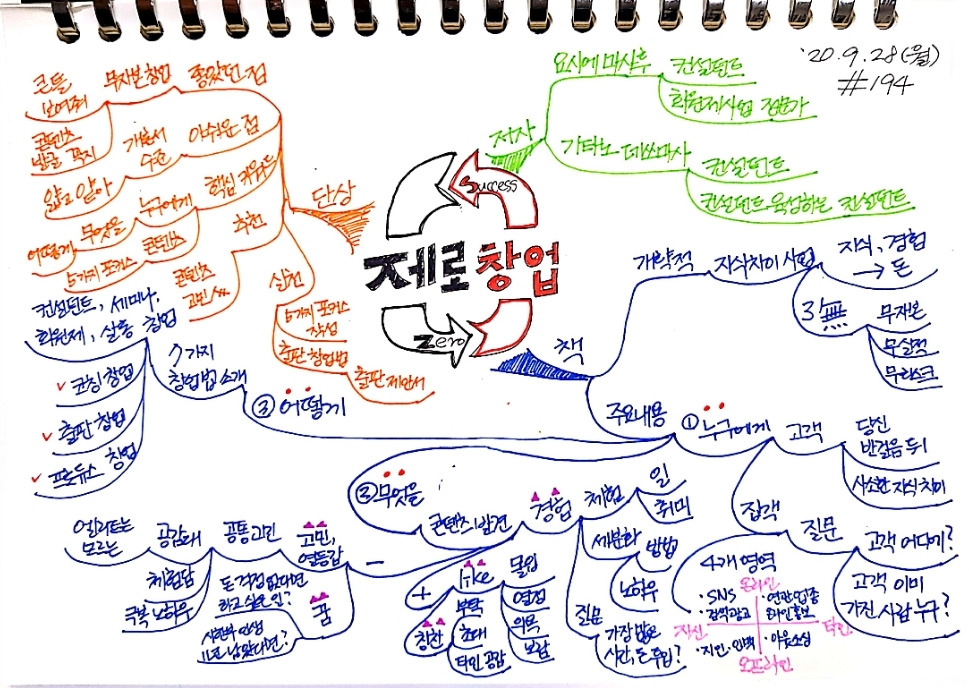 '20. 9. 28 (월)
#194
제로 창업
Success
Zero
저자
요시에 마사루
컨설턴트
회원제사업 전문가
기타노 데쓰마사
컨설턴트
컨설턴트 육성하는 컨설턴트
책
개략적
지식차이 사업
지식, 경험
→ 돈
3無
무재고
무실적
무리스크
주요내용
① 누구에게
고객
당신
반걸음 뒤
사소한 지식 차이
집객
질문
고객 어디에?
고객 이미
가진 사람 누구?
4개 영역
온라인
· SNS
· 검색광고
· 연관업종
자신
타인
· 지인·인맥
· 아웃소싱
오프라인
② 무엇을
콘텐츠 발견
경험
체험
일
취미
세분화
방법
노하우
질문
가장 많은
시간, 돈 투입?
+
like
몰입
열정
의욕
보람
부탁
칭찬
초대
타인 공감
-
고민,
열등감
공통 고민
공감대
엘리트는
모르는
체험담
극복 노하우
꿈
돈 걱정 없다면
하고 싶은 일?
③ 어떻게
7가지
창업법 소개
컨설턴트, 세미나,
회원제, 살롱 창업
✓ 코칭 창업
✓ 출판 창업
✓ 프로듀스 창업
단상
좋았던 점
무자본 창업
콘텐츠
발굴 꼭지
아쉬운 점
개론서
수준
얇고 얕아
핵심 키워드
누구에게
무엇을
어떻게
추천
콘텐츠
5가지 포커스
콘텐츠
고민
실천
5가지 포커스
작성
출판 창업법
출판 제안서